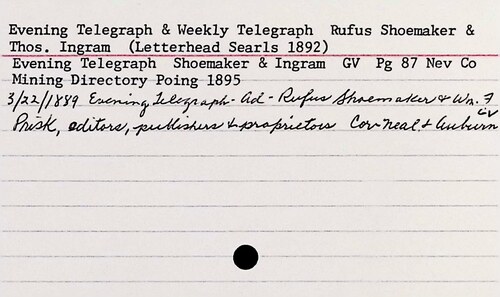 Evening Telegraph & Weekly Telegraph  Rufus Shoemaker &
Thos. Ingram  (Letterhead Searls 1892)
Evening Telegraph  Shoemaker & Ingram  GV  Pg 87 Nev Co
Mining Directory Poing 1895
3/22/1889 Evening Telegraph - Ad - Rufus Shoemaker & Wm. F
Prisk, editors, publishers & proprietors  Cor Neal & Auburn GV